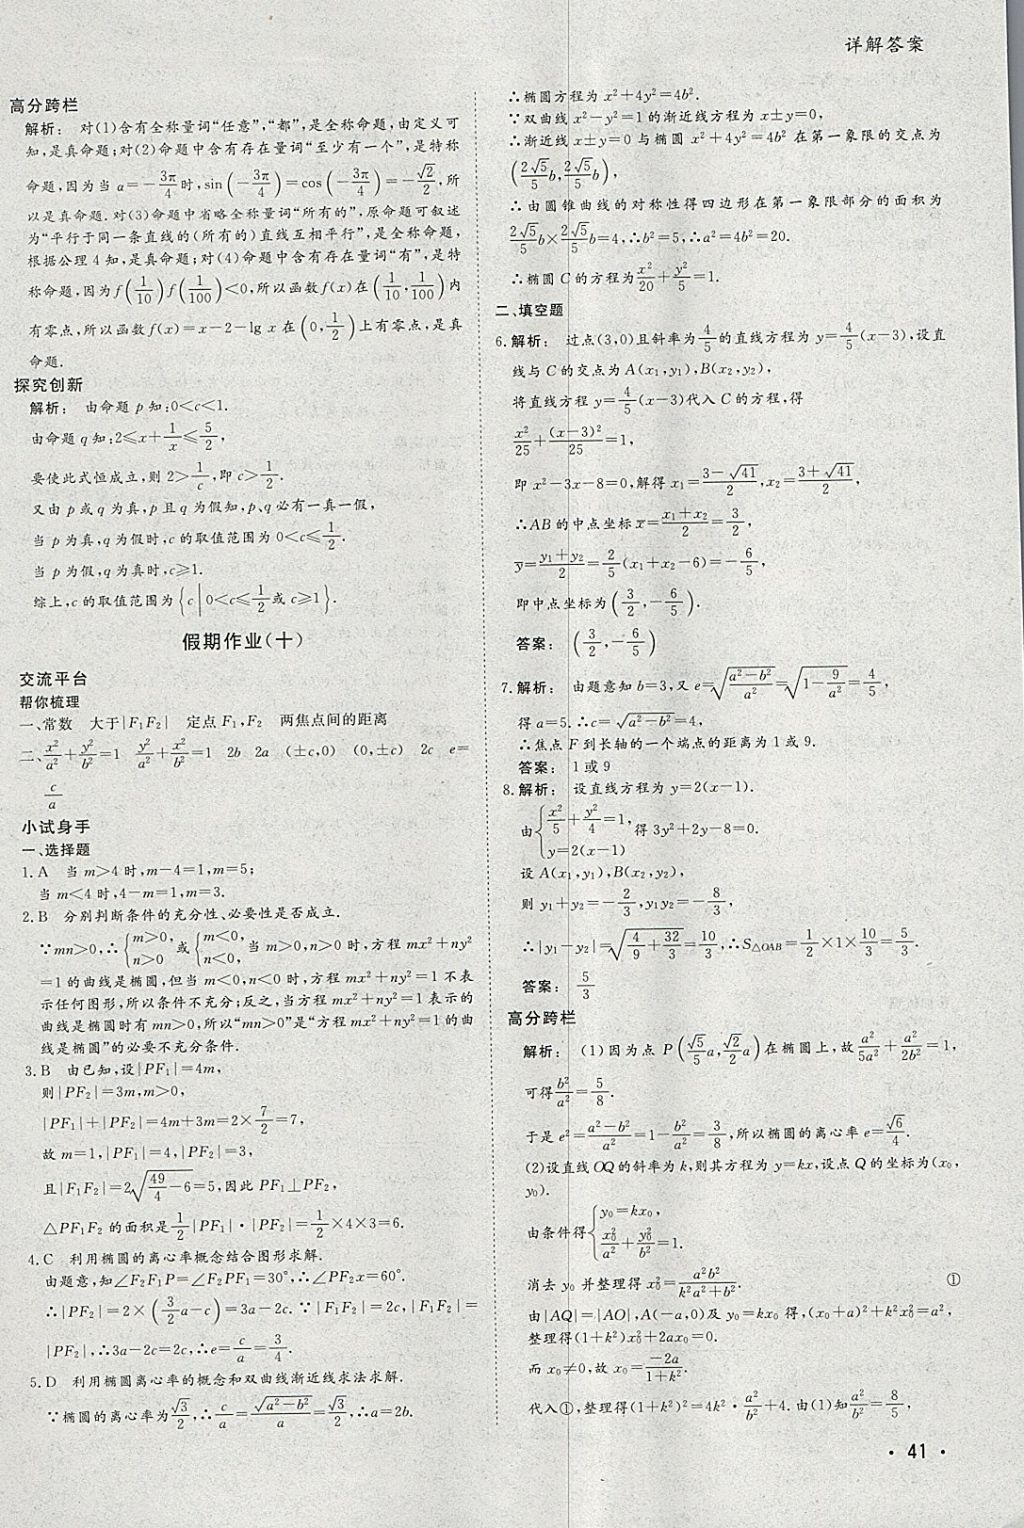 详解答案
高分跨栏
解析： 对(1)含有全称量词“任意”，“都”，是全称命题，由定义可
知，是真命题；对(2)命题中含有存在量词“至少有一个”，是特称
命题，因为当 α=-3π/4 时，sin(-3π/4)=cos(-3π/4)=-√2/2，所
以是真命题．对(3)命题中省略全称量词“所有的”，原命题可叙述
为“平行于同一条直线的(所有的)直线互相平行”，是全称命题，
根据公理 4 知，是真命题；对(4)命题中含有存在量词“有”，是特
称命题，因为 f(1/10)f(1/100)<0，所以函数 f(x)在(1/10,1/100)内
有零点，所以函数 f(x)=x-2-lg x 在(0,1/2)上有零点，是真
命题．
探究创新
解析： 由命题 p 知：0<c<1.
由命题 q 知：2≤x+1/x≤5/2，
要使此式恒成立，则 2>1/c，即 c>1/2.
又由 p 或 q 为真，p 且 q 为假知，p、q 必有一真一假，
当 p 为真，q 为假时，c 的取值范围为 0<c≤1/2.
当 p 为假，q 为真时，c≥1.
综上，c 的取值范围为{c|0<c≤1/2或 c≥1}.
假期作业(十)
交流平台
帮你梳理
一、常数 大于|F₁F₂| 定点 F₁,F₂ 两焦点间的距离
二、x²/a²+y²/b²=1 y²/a²+x²/b²=1 2b 2a (±c,0) (0,±c) 2c e=
c/a
小试身手
一、选择题
1. A 当 m>4 时，m-4=1，m=5；
当 m<4 时，4-m=1，m=3.
2. B 分别判断条件的充分性、必要性是否成立．
∵mn>0，∴{m>0, n>0 或{m<0, n<0, 当 m>0，n>0 时，方程 mx²+ny²
=1 的曲线是椭圆，但当 m<0，n<0 时，方程 mx²+ny²=1 不表
示任何图形，所以条件不充分；反之，当方程 mx²+ny²=1 表示的
曲线是椭圆时有 mn>0，所以“mn>0”是“方程 mx²+ny²=1 的曲
线是椭圆”的必要不充分条件．
3. B 由已知，设|PF₁|=4m，
则|PF₂|=3m，m>0，
|PF₁|+|PF₂|=4m+3m=2×7/2=7，
故 m=1，|PF₁|=4，|PF₂|=3，
且|F₁F₂|=2√(49/4-6)=5，因此 PF₁⊥PF₂，
△PF₁F₂ 的面积是1/2|PF₁|·|PF₂|=1/2×4×3=6.
4. C 利用椭圆的离心率概念结合图形求解．
由题意，知∠F₂F₁P=∠F₂PF₁=30°，∴∠PF₂x=60°.
∴|PF₂|=2×(3/2a-c)=3a-2c. ∵|F₁F₂|=2c，|F₁F₂|=
|PF₂|，∴3a-2c=2c，∴e=c/a=3/4.
5. D 利用椭圆离心率的概念和双曲线渐近线求法求解．
∵椭圆的离心率为√3/2，∴c/a=√(a²-b²)/a=√3/2，∴a=2b.
∴椭圆方程为 x²+4y²=4b².
∵双曲线 x²-y²=1 的渐近线方程为 x±y=0，
∴渐近线 x±y=0 与椭圆 x²+4y²=4b² 在第一象限的交点为
(2√5/5b,2√5/5b)，
∴由圆锥曲线的对称性得四边形在第一象限部分的面积为
2√5/5b×2√5/5b=4，∴b²=5，∴a²=4b²=20.
∴椭圆 C 的方程为x²/20+y²/5=1.
二、填空题
6. 解析： 过点(3,0)且斜率为4/5的直线方程为 y=4/5(x-3)，设直
线与 C 的交点为 A(x₁,y₁)，B(x₂,y₂)，
将直线方程 y=4/5(x-3)代入 C 的方程，得
x²/25+(x-3)²/25=1，
即 x²-3x-8=0，解得 x₁=(3-√41)/2，x₂=(3+√41)/2，
∴AB 的中点坐标 x̄=(x₁+x₂)/2=3/2，
ȳ=(y₁+y₂)/2=2/5(x₁+x₂-6)=-6/5，
即中点坐标为(3/2,-6/5).
答案： (3/2,-6/5)
7. 解析： 由题意知 b=3，又 e=√((a²-b²)/a²)=√(1-9/a²)=4/5，
得 a=5. ∴c=√(a²-b²)=4，
∴焦点 F 到长轴的一个端点的距离为 1 或 9.
答案： 1 或 9
8. 解析： 设直线方程为 y=2(x-1).
由{x²/5+y²/4=1, y=2(x-1) 得 3y²+2y-8=0.
设 A(x₁,y₁)，B(x₂,y₂)，
则 y₁+y₂=-2/3，y₁y₂=-8/3，
∴|y₁-y₂|=√(4/9+32/3)=10/3，∴S△OAB=1/2×1×10/3=5/3.
答案： 5/3
高分跨栏
解析： (1)因为点 P(√5/5a,√2/2a)在椭圆上，故a²/5a²+a²/2b²=1，
可得b²/a²=5/8.
于是 e²=(a²-b²)/a²=1-b²/a²=3/8，所以椭圆的离心率 e=√6/4.
(2)设直线 OQ 的斜率为 k，则其方程为 y=kx，设点 Q 的坐标为(x₀,
y₀).
由条件得{y₀=kx₀, x₀²/a²+y₀²/b²=1.
消去 y₀ 并整理得 x₀²=a²b²/(k²a²+b²). ①
由|AQ|=|AO|，A(-a,0)及 y₀=kx₀ 得，(x₀+a)²+k²x₀²=a²，
整理得(1+k²)x₀²+2ax₀=0.
而 x₀≠0，故 x₀=-2a/(1+k²).
代入①，整理得(1+k²)²=4k²·a²/b²+4. 由(1)知a²/b²=8/5，
· 41 ·